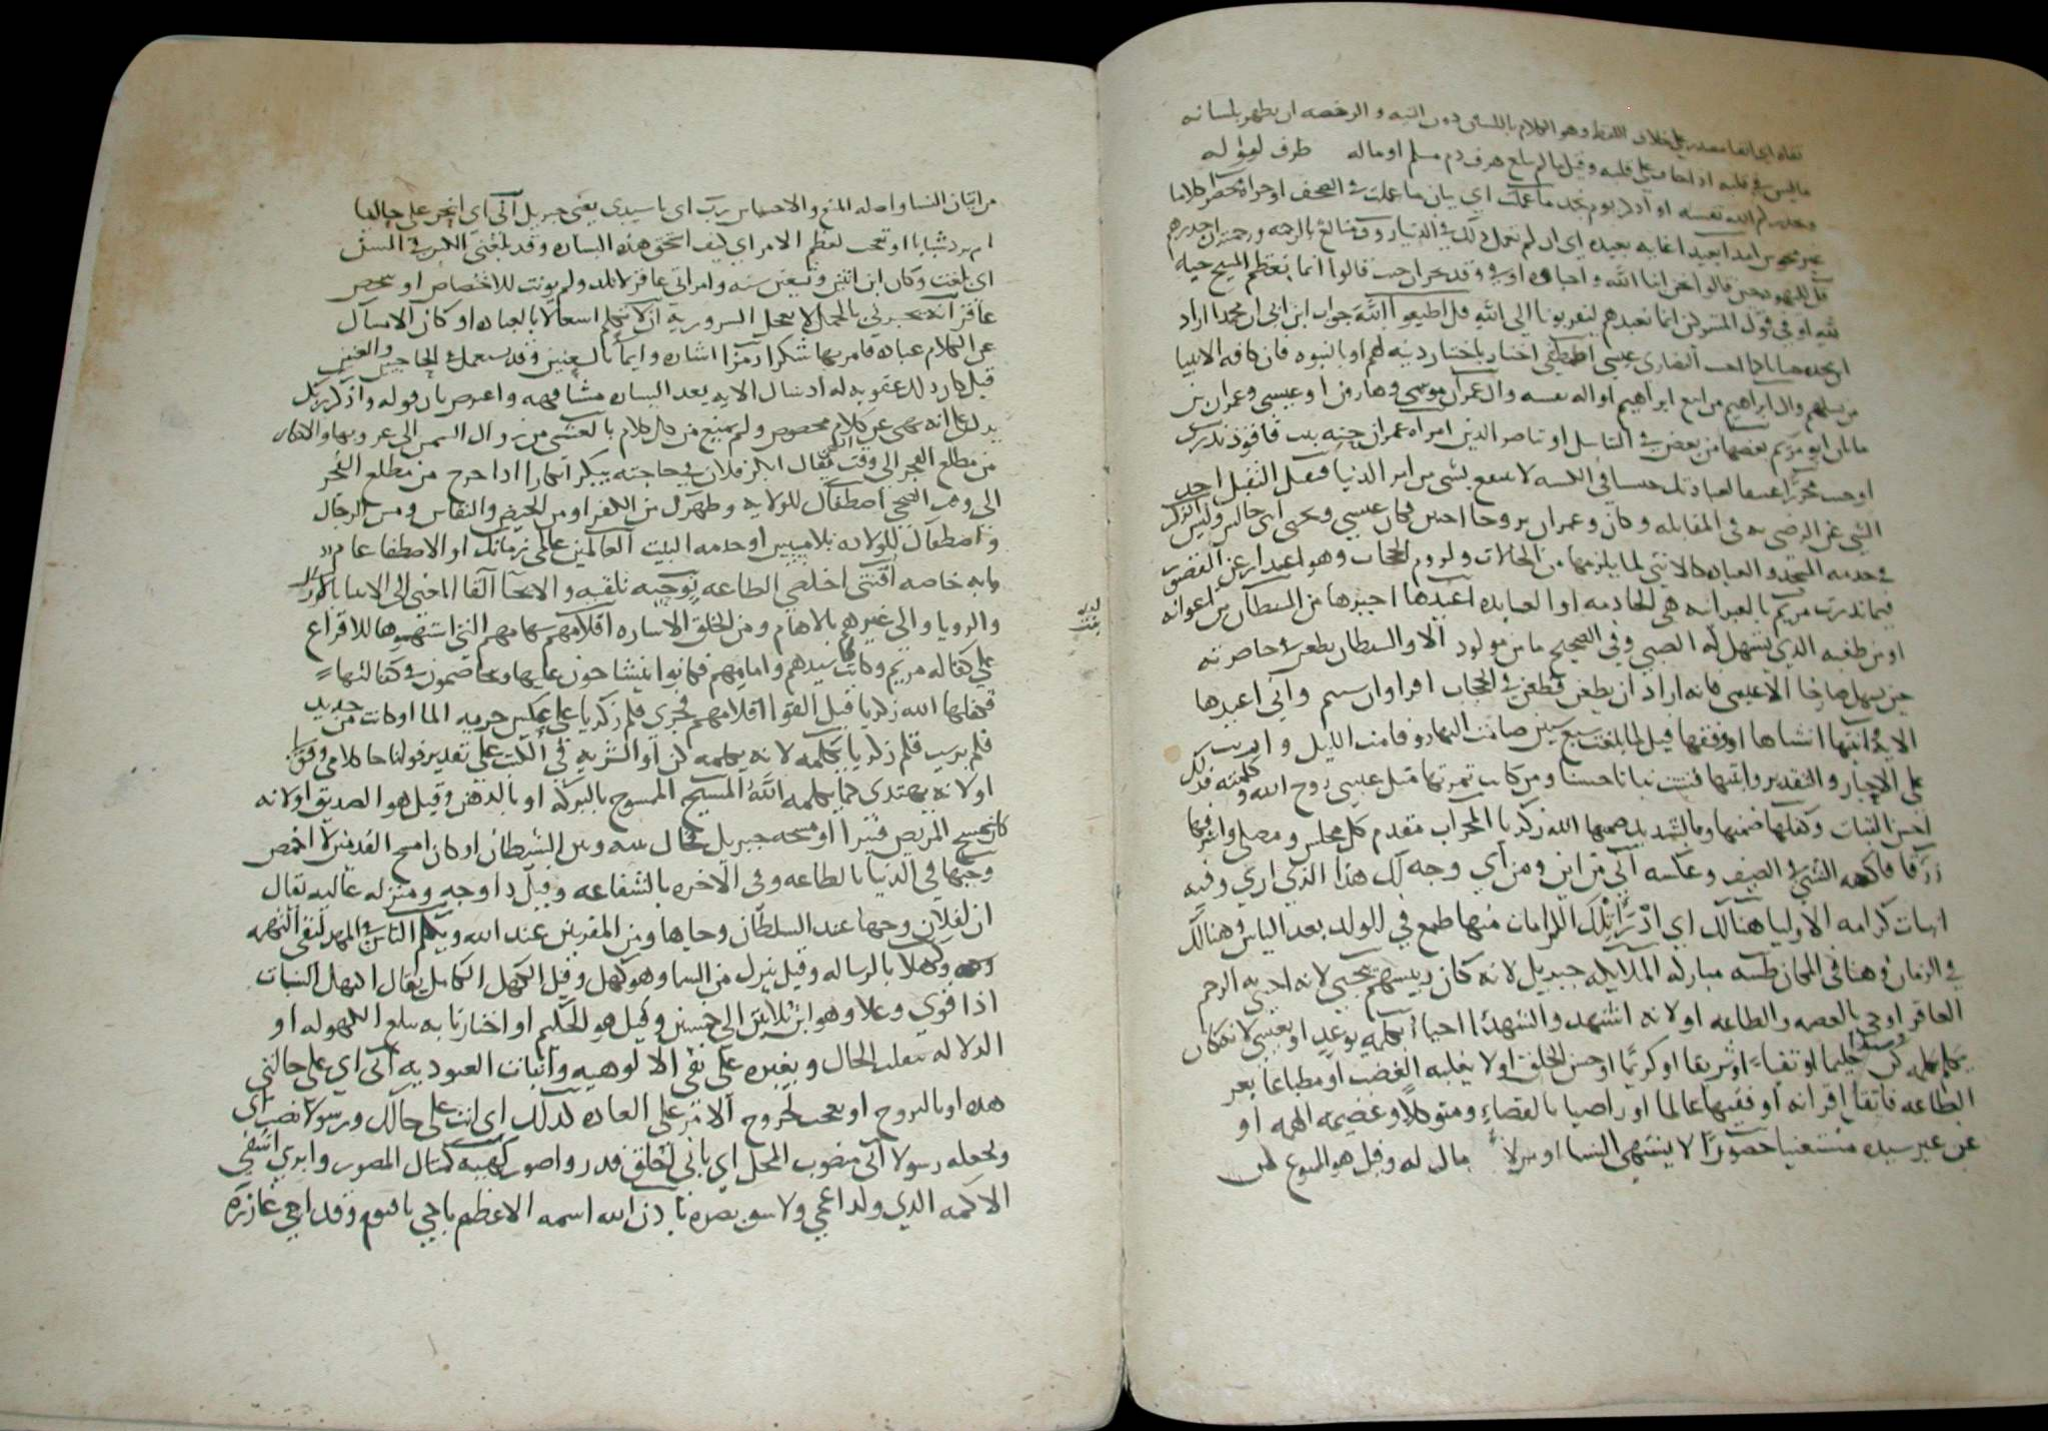 تقاه اي اتقا مصدر على خلاف اللفظ وهو الكلام باللسان دون النيه والرخصه ان يظهر بلسانه
ما ليس في قلبه اذا خاف على قلبه وقيل ما لم يبلغ هرق دم مسلم او ماله طرف لقوله
ويحذركم الله نفسه او اذكر يوم تجد ما عملت اي بيان ما عملت في الصحف او جزاه محضرا كلاما
غير محوس امدا بعيدا غايه بعيده اي ان لم تعمل ذلك في الدنيا رووف بالغ الرحمه
قل لليهود حين قالوا نحن ابنا الله واحباوه او في وفد نجران حيث قالوا انما نعظم المسيح حبا
لله او في قول المشركين انما نعبدهم ليقربونا الى الله قل اطيعوا الله جواب ابن ابي ان محمدا اراد
ان نتخذه حنانا كما النصارى عيسى اصطفى اختار باختيار دينه لهم او بالنبوه فان كافه الانبيا
من نسلهم وال ابراهيم من اتبع ابراهيم او اله نفسه وال عمران موسى وهارون او عيسى وعمران بن
ماثان ابو مريم بعضها من بعض في التناسل او تناصر الدين امراه عمران حنه بنت فاقوذ نذرت
اوجبت محررا عتيقا لعبادتك حبيسا في الكنيسه لا ينتفع بشي من امر الدنيا فتقبل التقبل اخذ
الشي على الرضى به في المقابله وكان وعمران تزوجا اختين فكان عيسى ويحيى ابني خاله وليس الذكر
في خدمه المسجد والعباد كالانثى لما يلزمها من الحالات ولزوم الحجاب وهو اعتذار عن القصور
فيما نذرت مريم بالعبرانيه هي الخادمه او العابده اعيذها اجيرها من الشيطان من اعوانه
او من طعنه الذي يستهل له الصبي وفي الصحيح ما من مولود الا والشيطان يطعن في خاصرته
حين يستهل صارخا الا عيسى فانه اراد ان يطعن فطعن في الحجاب اقراوا ان شيتم واني اعيذها
الايه انبتها انشاها او وفقها قيل لما بلغت سبع سنين صامت النهار وقامت الليل وانبت
على الاجبار والتقدير وانبتها فنبتت نباتا حسنا ومن كانت ثمرتها مثل عيسى روح الله وكلمته فذلك
احسن النبات وكفلها ضمنها وبالتشديد ضمها الله زكريا المحراب مقدم كل مجلس ومصلى واشرفها
رزقا فاكهه الشتا في الصيف وعكسه انى من اين ومن اي وجه لك هذا الذي ارى وفيه
اثبات كرامه الاوليا هنالك اي اذ راى تلك الكرامات منها طمع في الولد بعد الياس وهنالك
في الزمان وهنا في المكان طيبه مباركه الملائكه جبريل لانه كان رييسهم بيحيى لانه احيى به الرحم
العاقر او حي بالعصمه والطاعه او لانه استشهد والشهدا احيا بكلمه بوعد او بعيسى لانه كان
بكلمه كن وسيدا حليما او تقيا او شريفا او كريما او حسن الخلق او لا يغلبه الغضب او مطيعا
الطاعه فاتقا اقرانه او فقيها عالما او راضيا بالقضاء ومتوكلا وعظيمه الهمه او
عن غير سيده مستغنيا حصورا لا يشتهي النسا او لا مال له وقيل هو الممنوع
من اتيان النسا واصله المنع والاحتباس رب اي يا سيدي يعني جبريل انى اي انحن على حالنا
ام نرد شبابا او تعجب لعظم الامر اي كيف استحق هذه البشاره وقد بلغني الكبر في السن
اي بلغت وكان ابن اثنين وتسعين سنه وامراتي عاقر لا تلد ولم يونث للاختصاص او شخص
عاقر ايه تخبرني بالحمل لا تعجل السرور به ان لا تكلم اشتغالا بالعباده او كان الامساك
عن الكلام عباده فامر بها شكرا رمزا اشاره وايماء بالعينين وقد يستعمل في الحاجبين والعينين
قيل كان ذلك عقوبه له اذ سال الايه بعد البشاره مشافهه واعترض بان قوله واذكر ربك
يدل على انه نهي عن كلام مخصوص ولم يمنع من كل كلام بالعشي من زوال الشمس الى غروبها والابكار
من مطلع الفجر الى وقت الضحى يقال ابكر فلان في حاجته يبكر ابكارا اذا خرج من مطلع الفجر
الى وقت الضحى اصطفاك للولايه وطهرك من الكفر او من الحيض والنفاس ومس الرجال
واصطفاك للولاده بلا مسيس او خدمه البيت العالمين عالمي زمانك او الاصطفا عام
وانه خاصه اقنتي اخلصي الطاعه نوحيه نلقيه والايحا القا المعنى الى الانبيا بارسال
والرويا والى غيرهم بالالهام ومن الخلق الاشاره اقلامهم سهامهم التي استهموها للاقراع
على كفاله مريم وكانت بنت سيدهم وامامهم فكانوا يتشاحون عليها ويختصمون في كفالتها
فكفلها الله زكريا قيل القوا اقلامهم فجرى قلم زكريا على عكس جريه الما او كانت من حديد
فلم يرسب قلم زكريا بكلمه لانه بكلمه كن او البشر به في الكتب على تقدير قولنا جا كلامي وفق
او لانه يهتدى كما بكلمه الله المسيح الممسوح بالبركه او بالدهن وقيل هو الصديق او لانه
كان يمسح المريض فيبرا او مسحه جبريل فحال بينه وبين الشيطان او كان امسح القدمين لا اخمص
وجيها في الدنيا بالطاعه وفي الاخره بالشفاعه وقيل ذا وجه ومنزله عاليه يقال
ان لفلان وجها عند السلطان وجاها ومن المقربين عند الله ويكلم الناس في المهد لنفي التهمه
وكهلا بالرساله وقيل ينزل من السما وهو كهل وقيل الكهل الكامل يقال اكتهل النبات
اذا قوي وعلا وهو ابن ثلاثين الى خمسين وقيل هو الحكيم او اخبارنا به يبلغ الكهوله او
الدلاله بتقلب الحال وتغيره على نفي الالوهيه واثبات العبوديه انى اي على حالتي
هذه او بالتزوج او تعجب لخروج الامر على العاده كذلك اي انت على حالك ورسولا نصب اي
ونجعله رسولا اني منصوب المحل اي باني اخلق اقدر واصور كهييه كمثال المصور وابري اشفي
الاكمه الذي ولد اعمى ولا بصره باذن الله اسمه الاعظم يا حي يا قيوم وقد احيى عازره